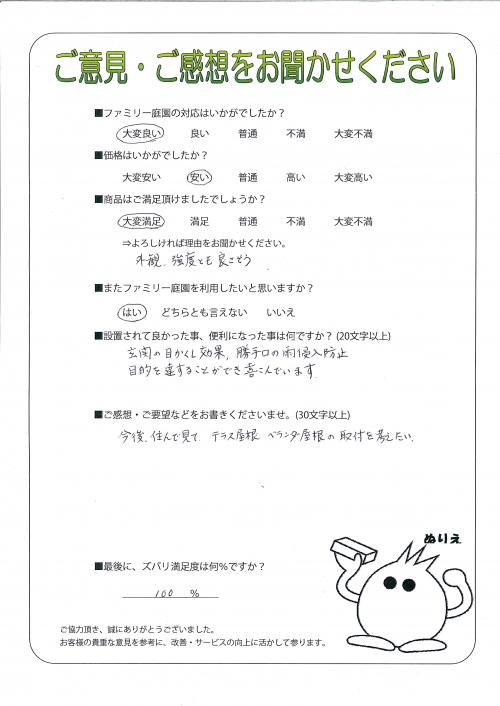 ご意見・ご感想をお聞かせください
■ファミリー庭園の対応はいかがでしたか？
大変良い 良い 普通 不満 大変不満
■価格はいかがでしたか？
大変安い 安い 普通 高い 大変高い
■商品はご満足頂けましたでしょうか？
大変満足 満足 普通 不満 大変不満
⇒よろしければ理由をお聞かせください。
外観、強度とも良さそう
■またファミリー庭園を利用したいと思いますか？
はい どちらとも言えない いいえ
■設置されて良かった事、便利になった事は何ですか？(20文字以上)
玄関の目かくし効果、勝手口の雨侵入防止
目的を達することができ喜こんでいます。
■ご感想・ご要望などをお書きくださいませ。(30文字以上)
今後、住んで見て テラス屋根 ベランダ屋根の取付を考えたい。
ぬりえ
■最後に、ズバリ満足度は何%ですか？
100 %
ご協力頂き、誠にありがとうございました。
お客様の貴重な意見を参考に、改善・サービスの向上に活かして参ります。